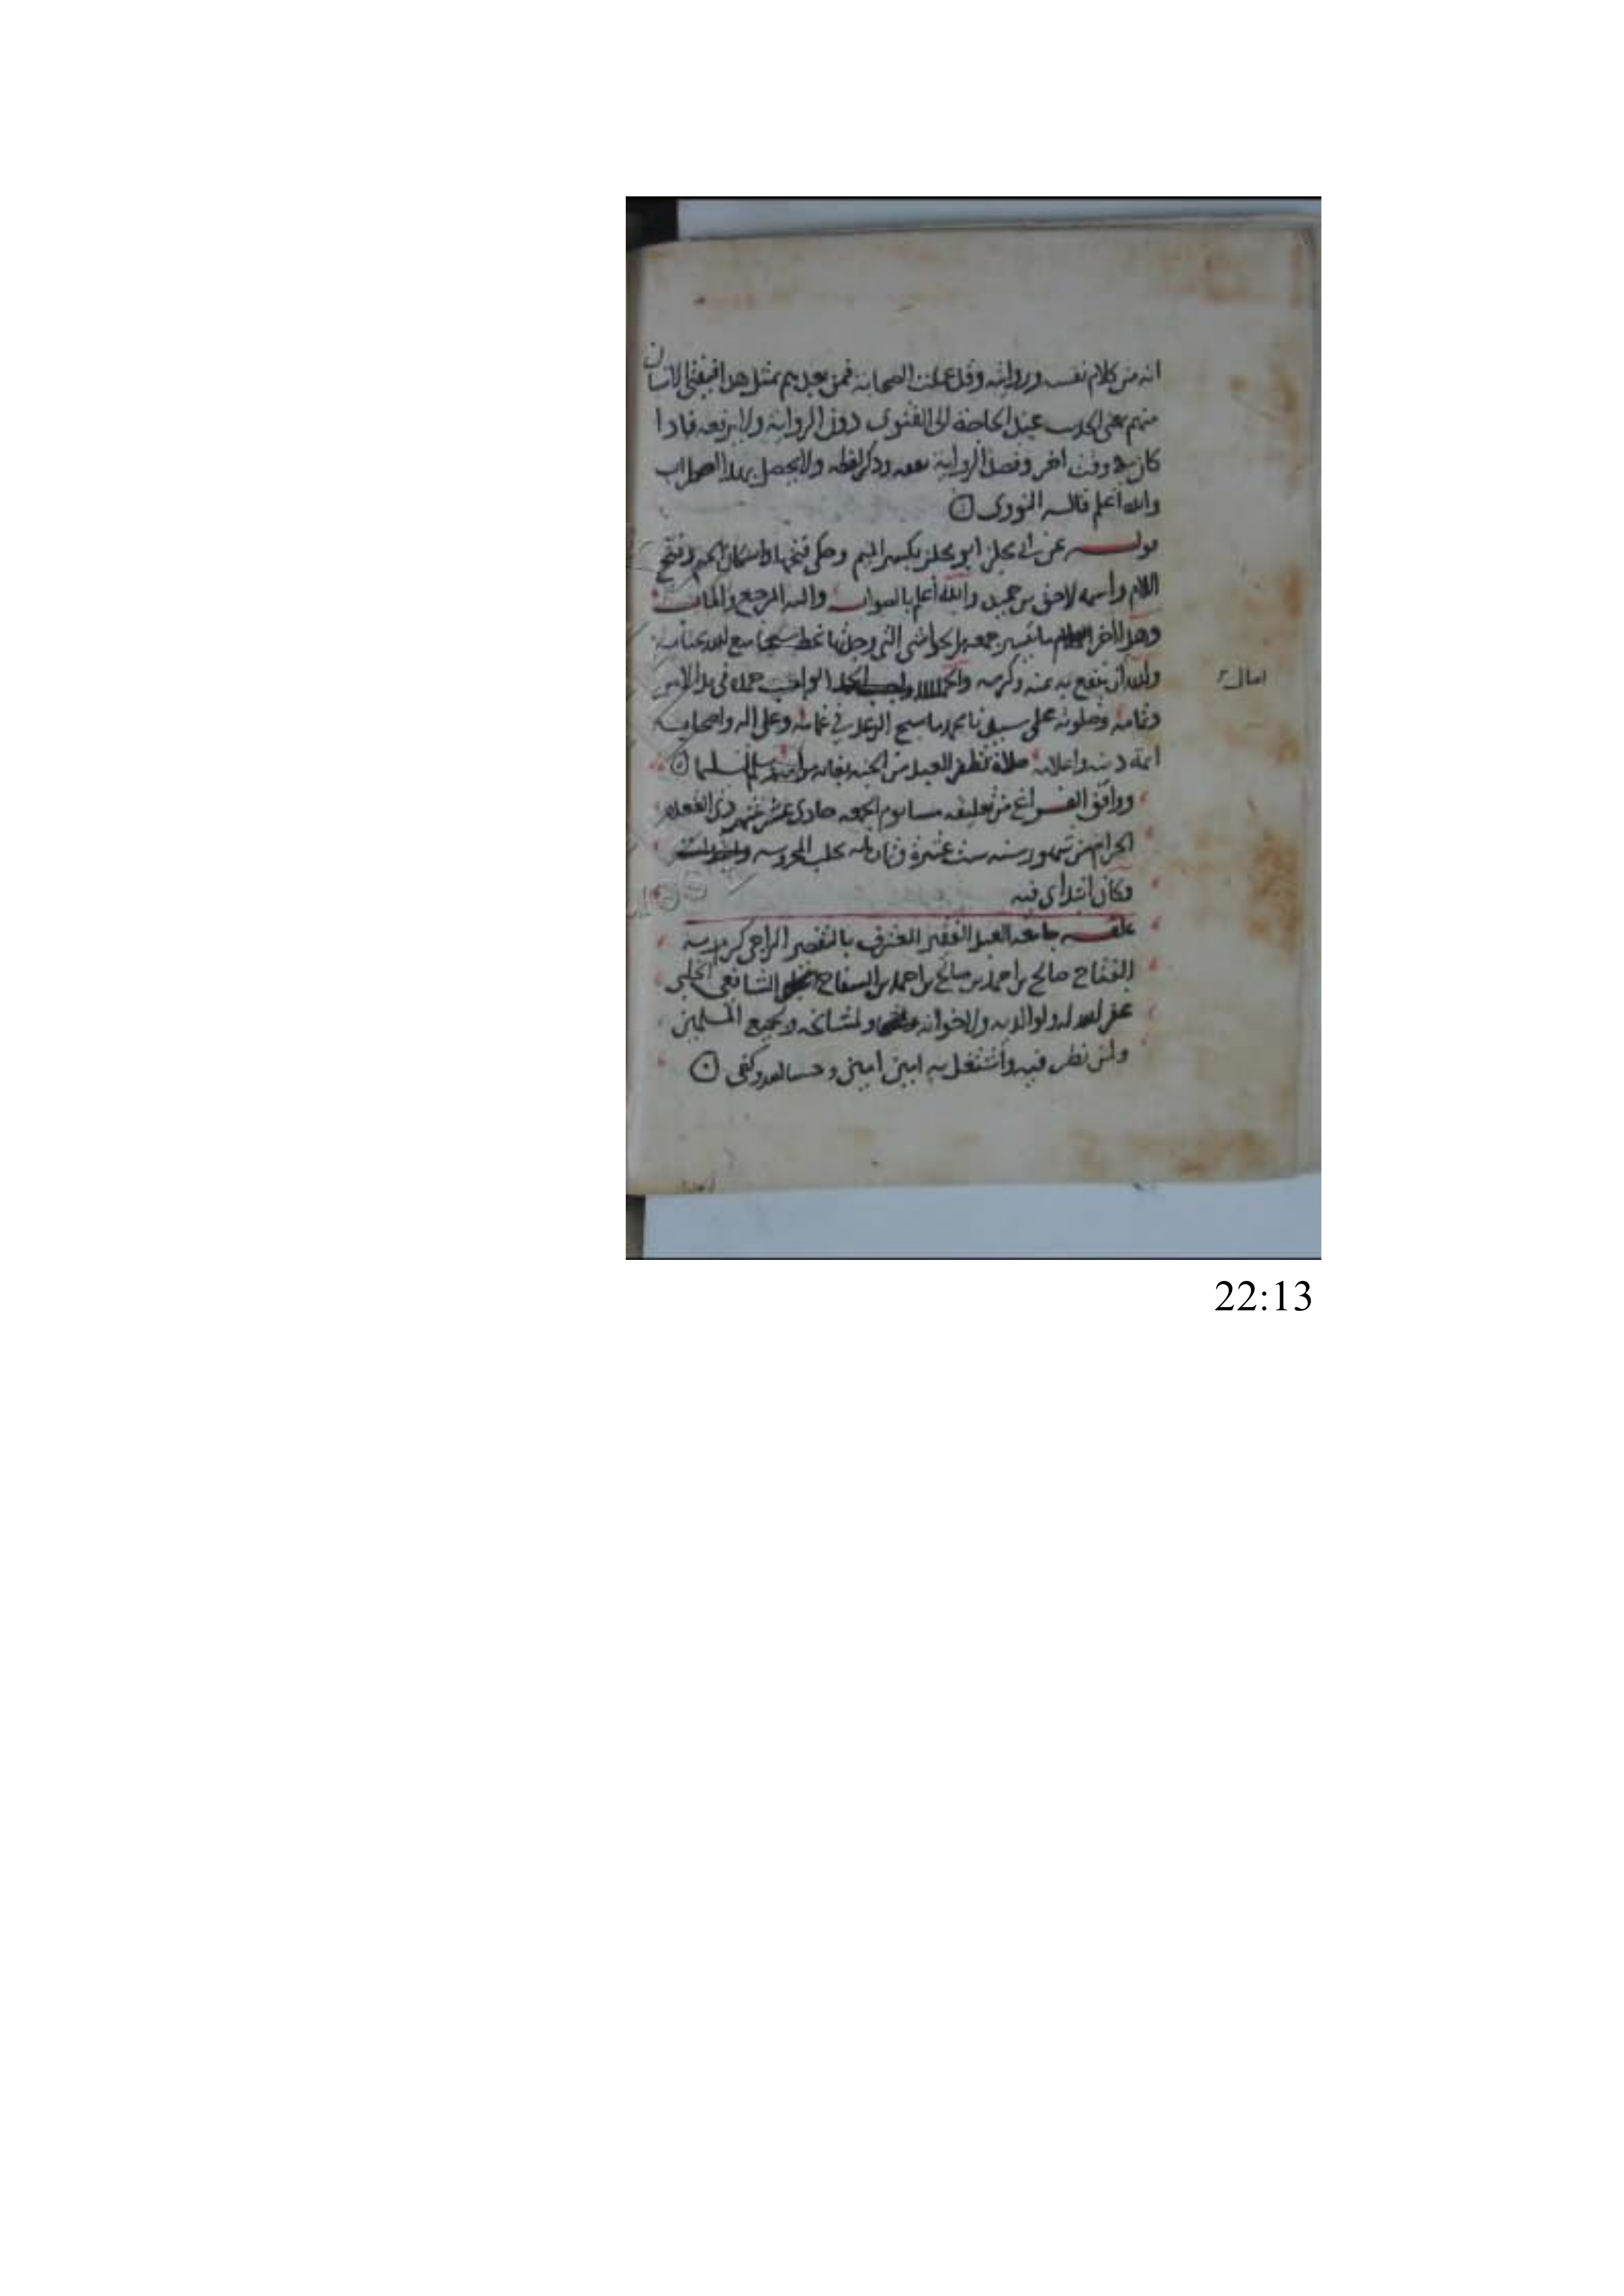 انه من كلام نفسه وروايته وقد عملت الصحابة فمن بعدهم بمثل هذا فيفتي الانسان
منهم بمعنى الحديث عند الحاجة الى الفتوى دون الرواية ولا يرفعه فاذا
كان وقت اخر وقصد الرواية رفعه وذكر لفظه ولا يحصل بهذا اضطراب
والله اعلم قاله النووي
قوله عن ابي مجلز ابو مجلز بكسر الميم وحكي فتحها واسكان الجيم وفتح
اللام واسمه لاحق بن حميد والله أعلم بالصواب واليه المرجع والمآب
وهذا اخر ما تيسر جمعه من الحواشي التي وجدتها بخط
والله ان ينفع به بمنه وكرمه والحمد لله الواجب حمده في بدء الامر
وتمامه وصلوته على سيدنا محمد ما سبح الرعد في غمامه وعلى اله واصحابه
ائمة دينه واعلامه صلاة تظفر العبد من الجنة
ووافق الفراغ من تعليقه مساء يوم الجمعه حادى عشر شهر ذى القعده
الحرام من شهور سنه ست عشرة وثمان مايه بحلب المحروسه
وكان ابتداى فيه
علقه جامعه العبد الفقير المعترف بالتقصير الراجي كرم ربه
الفتاح صالح بن احمد بن صالح بن احمد بن السفاح الشافعي الحلبي
غفر الله له ولوالديه ولاخوانه ولمشايخه ولجميع المسلمين
ولمن نظر فيه واشتغل به امين امين وحسبنا الله وكفى
22:13